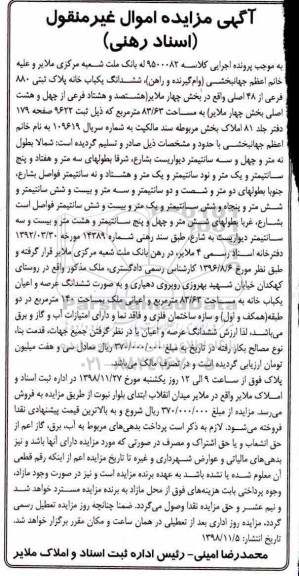 آگهی مزایده اموال غیرمنقول
(اسناد رهنی)
به موجب پرونده اجرایی کلاسه ۹۵۰۰۰۸۲ له بانک ملت شعبه مرکزی ملایر و علیه
خانم اعظم جهانبخشی (وام‌گیرنده و راهن)، ششدانگ یکباب خانه پلاک ثبتی ۸۸۰
فرعی از ۴۸ اصلی واقع در بخش چهار ملایر(هشتصد و هشتاد فرعی از چهل و هشت
اصلی بخش چهار ملایر) به مساحت ۸۳/۶۳ مترمربع که ذیل ثبت ۹۶۲۲ صفحه ۱۷۹
دفتر جلد ۸۱ املاک بخش مربوطه سند مالکیت به شماره سریال ۱۰۹۶۱۹ به نام خانم
اعظم جهانبخشی با حدود و مشخصات ذیل صادر و تسلیم گردیده است: شمالا بطول
نه متر و چهل و سه سانتیمتر دیواریست بشارع، شرقا بطولهای سه متر و هفتاد و پنج
سانتیمتر و یک متر و نود سانتیمتر و یک متر و هشتاد و نه سانتیمتر فواصل بشارع،
جنوبا بطولهای دو متر و شصت و دو سانتیمتر و سه متر و بیست و شش سانتیمتر و
شش متر و پنجاه و شش سانتیمتر و یک متر و بیست و شش سانتیمتر فواصل است
بشارع، غربا بطولهای شش متر و چهل و پنج سانتیمتر و هشت متر و بیست و سه
سانتیمتر دیواریست به شارع، طبق سند رهنی شماره ۱۴۳۸۹ مورخه ۱۳۹۲/۰۳/۳۰
دفترخانه اسناد رسمی ۴ ملایر، در رهن بانک ملت شعبه مرکزی ملایر قرار گرفته و
طبق نظر مورخ ۱۳۹۶/۸/۶ کارشناس رسمی دادگستری، ملک مذکور واقع در روستای
کهکدان خیابان شهید بهروزی روبروی دهیاری و به صورت ششدانگ عرصه و اعیان
یکباب خانه به مساحت ۸۳/۶۳ مترمربع و اعیانی ملک بمساحت ۱۴۰ مترمربع در دو
طبقه(همکف و اول) و سازه ساختمان فلزی و فاقد نما و دارای امتیازات آب و گاز و برق
می‌باشد، لذا ارزش ششدانگ عرصه و اعیان با در نظر گرفتن جمیع جهات، قدمت بنا،
نوع مصالح بکار رفته در تاریخ به مبلغ ۳۷۰/۰۰۰/۰۰۰ ریال معادل سی و هفت میلیون
تومان ارزیابی گردیده است و در تصرف مالک می‌باشد.
پلاک فوق از ساعت ۹ الی ۱۲ روز یکشنبه مورخ ۱۳۹۸/۱۱/۲۷ در اداره ثبت اسناد و
املاک ملایر واقع در ملایر میدان انقلاب ابتدای بلوار نبوت از طریق مزایده به فروش
می‌رسد. مزایده از مبلغ ۳۷۰/۰۰۰/۰۰۰ ریال شروع و به بالاترین قیمت پیشنهادی نقدا
فروخته می‌شود. لازم به ذکر است پرداخت بدهی‌های مربوط به آب، برق، گاز اعم از
حق انشعاب و یا حق اشتراک و مصرف در صورتی که مورد مزایده دارای آنها باشد و نیز
بدهی‌های مالیاتی و عوارض شهرداری و غیره تا تاریخ مزایده اعم از اینکه رقم قطعی
آن معلوم شده یا نشده باشد به عهده برنده مزایده است و نیز در صورت وجود مازاد،
وجوه پرداختی بابت هزینه‌های فوق از محل مازاد به برنده مزایده مسترد خواهد شد
و نیم عشر و حق مزایده نقدا وصول می‌گردد. ضمنا چنانچه روز مزایده تعطیل رسمی
گردد، مزایده روز اداری بعد از تعطیلی در همان ساعت و مکان مقرر برگزار خواهد شد.
تاریخ انتشار: ۱۳۹۸/۱۱/۵
محمدرضا امینی- رئیس اداره ثبت اسناد و املاک ملایر